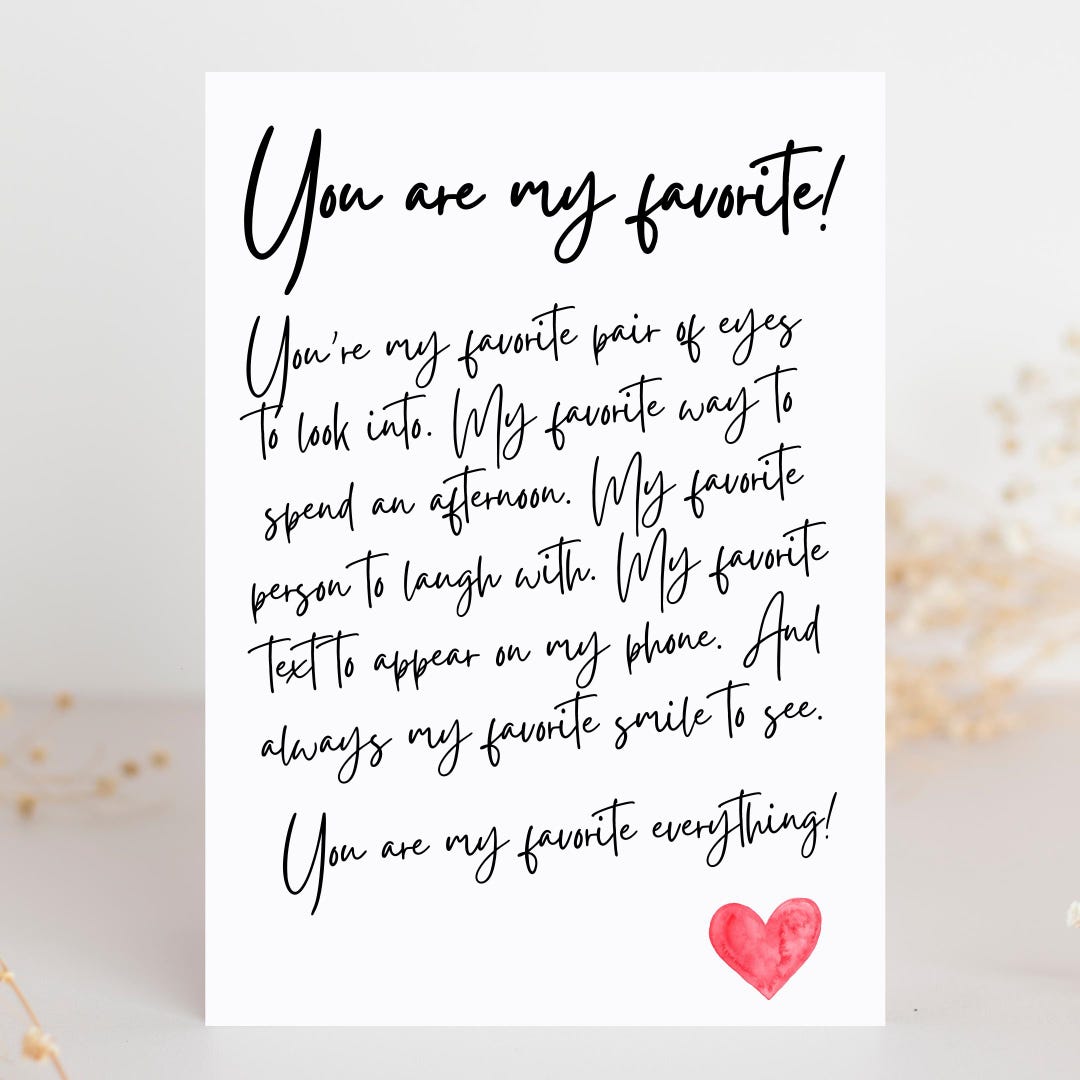 You are my favorite!
You're my favorite pair of eyes
to look into. My favorite way to
spend an afternoon. My favorite
person to laugh with. My favorite
text to appear on my phone. And
always my favorite smile to see.
You are my favorite everything!